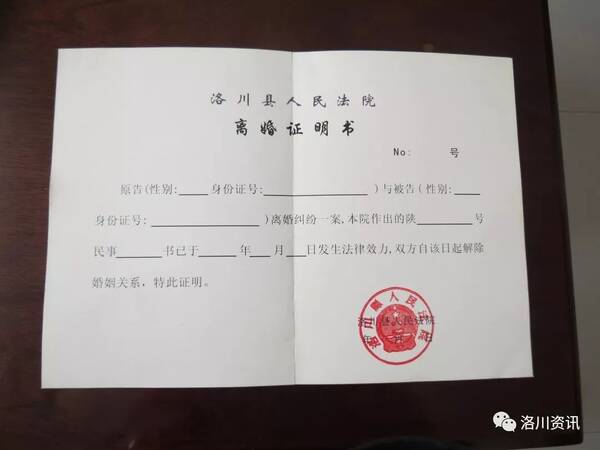 洛川县人民法院
离婚证明书
No: 号
原告(性别:____身份证号:____________)与被告(性别:____
身份证号:____________)离婚纠纷一案,本院作出的陕________号
民事______书已于_____年____月___日发生法律效力,双方自该日起解除
婚姻关系,特此证明。
洛川县人民法院
洛川县人民法院
年 月 日
洛川资讯